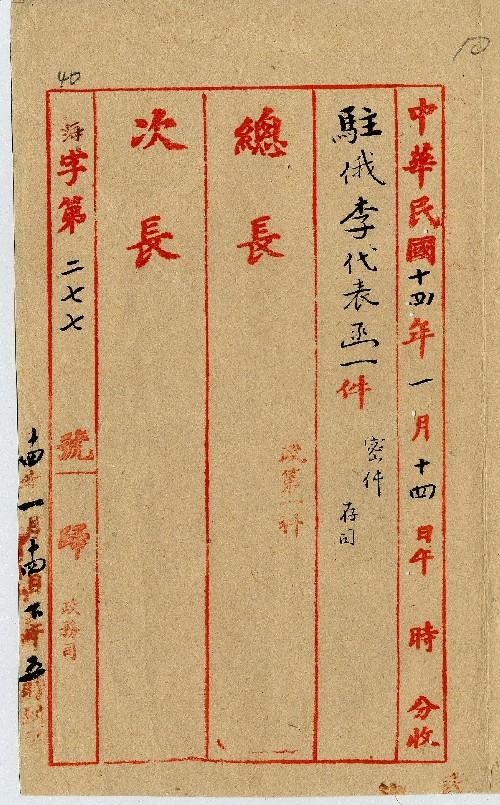 40
10
中華民國十四年一月十四日午時分收
駐俄李代表函一件
密件
存司
總長
第一科
次長
海字第二七七號歸政務司
十四年一月十四日下午五時到